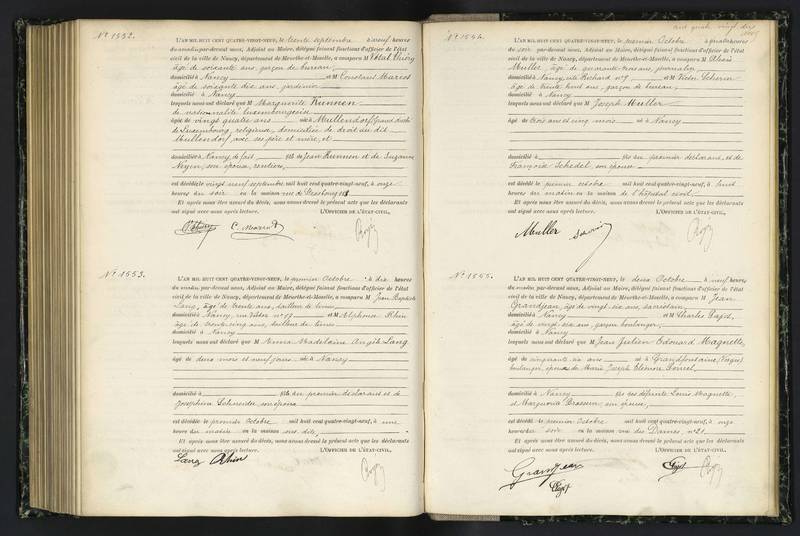 N° 1552.
L'AN MIL HUIT CENT QUATRE-VINGT-NEUF, le trente septembre à neuf heures
du matin par-devant nous, Adjoint au Maire, délégué faisant fonctions d'officier de l'état
civil de la ville de Nancy, département de Meurthe-et-Moselle, a comparu M Vital Thiéry
âgé de soixante ans, garçon de bureau,
domicilié à Nancy et M Constant
âgé de soixante dix ans, jardinier
domicilié à Nancy
lesquels nous ont déclaré que M Marguerite Kunnen
de nationalité luxembourgeoise
âgée de vingt quatre ans née à Mullendorf, Grand duché
de Luxembourg, religieuse, domiciliée de droit au dit
Mullendorf, avec ses père et mère, et
domiciliée à Nancy de fait, fille de Jean Kunnen et de Suzanne
son épouse, rentiers,
est décédée vingt neuf septembre mil huit cent quatre-vingt-neuf, à onze
heures du soir en la maison rue de Strasbourg
Et après nous être assuré du décès, nous avons dressé le présent acte que les déclarants
ont signé avec nous après lecture. L'OFFICIER DE L'ÉTAT-CIVIL,
N° 1553.
L'AN MIL HUIT CENT QUATRE-VINGT-NEUF, le premier Octobre à dix heures
du matin par-devant nous, Adjoint au Maire, délégué faisant fonctions d'officier de l'état
civil de la ville de Nancy, département de Meurthe-et-Moselle, a comparu M Jean Baptiste
Lang, âgé de trente ans, tailleur de limes
domicilié à Nancy, rue n° 19 et M Alphonse Rhin
âgé de trente cinq ans, tailleur de limes
domicilié à Nancy
lesquels nous ont déclaré que M Emma Madelaine Angèle Lang
âgée de deux mois et neuf jours née à Nancy
domicilié à fille du premier déclarant et de
Joséphine Schneider, son épouse
est décédée premier octobre mil huit cent quatre-vingt-neuf, à une
heure du matin en la maison sus dite,
Et après nous être assuré du décès, nous avons dressé le présent acte que les déclarants
ont signé avec nous après lecture. L'OFFICIER DE L'ÉTAT-CIVIL,
Lang Rhin
N° 1554.
L'AN MIL HUIT CENT QUATRE-VINGT-NEUF, le premier Octobre à quatre heures
du soir par-devant nous, Adjoint au Maire, délégué faisant fonctions d'officier de l'état
civil de la ville de Nancy, département de Meurthe-et-Moselle, a comparu M Aloïs
Muller, âgé de quarante trois ans, journalier
domicilié à Nancy, rue Richard n° 9 et M Victor Scherer
âgé de trente huit ans, garçon de bureau,
domicilié à Nancy
lesquels nous ont déclaré que M Joseph Muller
âgé de trois ans et cinq mois né à Nancy
domicilié à fils du premier déclarant, et de
Françoise Schedel, son épouse
est décédé premier octobre mil huit cent quatre-vingt-neuf, à huit
heures du matin en la maison de l'hôpital civil,
Et après nous être assuré du décès, nous avons dressé le présent acte que les déclarants
ont signé avec nous après lecture. L'OFFICIER DE L'ÉTAT-CIVIL,
Muller
N° 1555.
L'AN MIL HUIT CENT QUATRE-VINGT-NEUF, le deux Octobre à neuf heures
du matin par-devant nous, Adjoint au Maire, délégué faisant fonctions d'officier de l'état
civil de la ville de Nancy, département de Meurthe-et-Moselle, a comparu M Jean
Grandjean, âgé de vingt-six ans, sacristain
domicilié à Nancy et M Charles
âgé de vingt-six ans, garçon boulanger,
domicilié à Nancy
lesquels nous ont déclaré que M Jean Julien Edouard Magnette
âgé de cinquante six ans né à Grandfontaine (Vosges)
boulanger, époux de Marie Joseph Eléonore
domicilié à Nancy fils des défunts Louis Magnette,
et Marguerite son épouse,
est décédé premier octobre mil huit cent quatre-vingt-neuf, à onze
heures du soir en la maison rue des Dames n° 21
Et après nous être assuré du décès, nous avons dressé le présent acte que les déclarants
ont signé avec nous après lecture. L'OFFICIER DE L'ÉTAT-CIVIL,
Grandjean